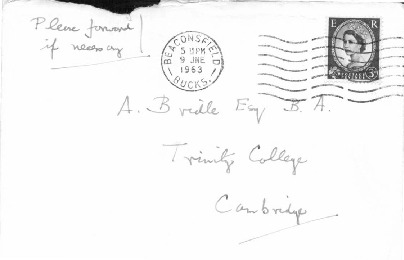 Please forward
if necessary
BEACONSFIELD
5 PM
9 JNE
1963
BUCKS.
E R
A. Bridle Esq B.A.
Trinity College
Cambridge